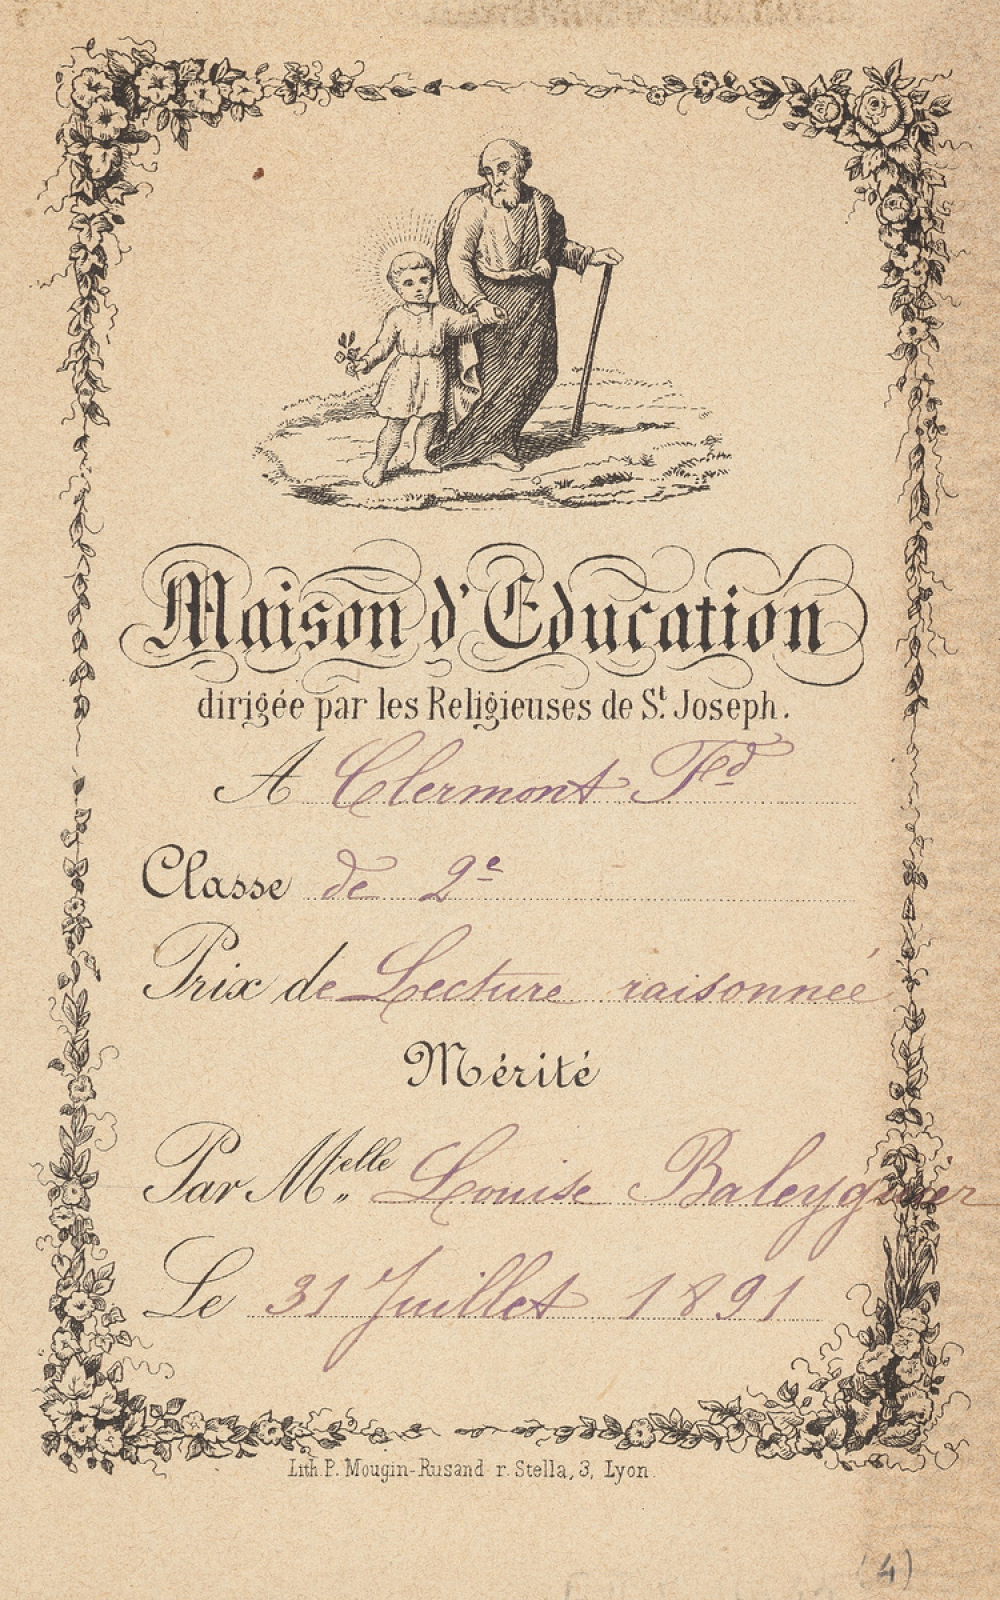 Maison d'Education
dirigée par les Religieuses de St. Joseph.
A Clermont Fd
Classe de 2e
Prix de Lecture raisonnée
Mérité
Par Melle Louise Baleyguier
Le 31 Juillet 1891
Lith. P. Mougin-Rusand r. Stella, 3, Lyon
(4)